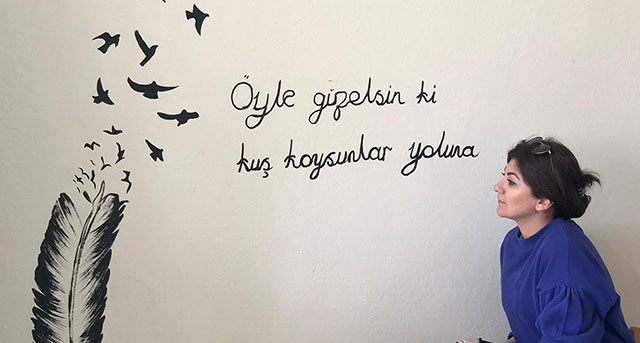 Öyle gizelsin ki
kuş koysunlar yoluna